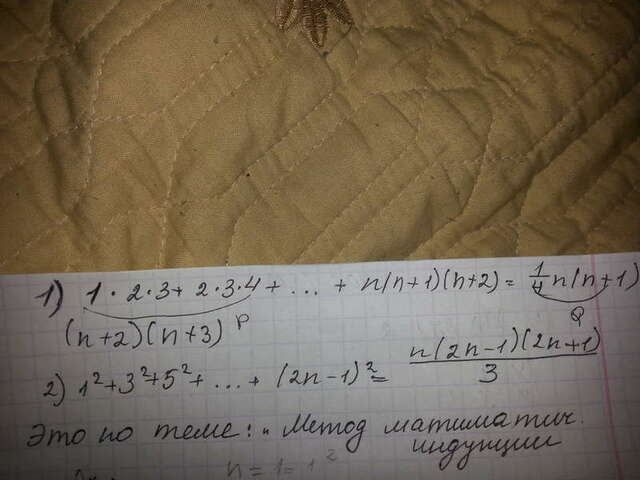 1) 1·2·3+2·3·4+...+n(n+1)(n+2)=1/4n(n+1)
(n+2)(n+3) P Q
2) 1²+3²+5²+...+(2n-1)²=n(2n-1)(2n+1)/3
Это по теме: „Метод матиматич.
индукции
n=1=1²